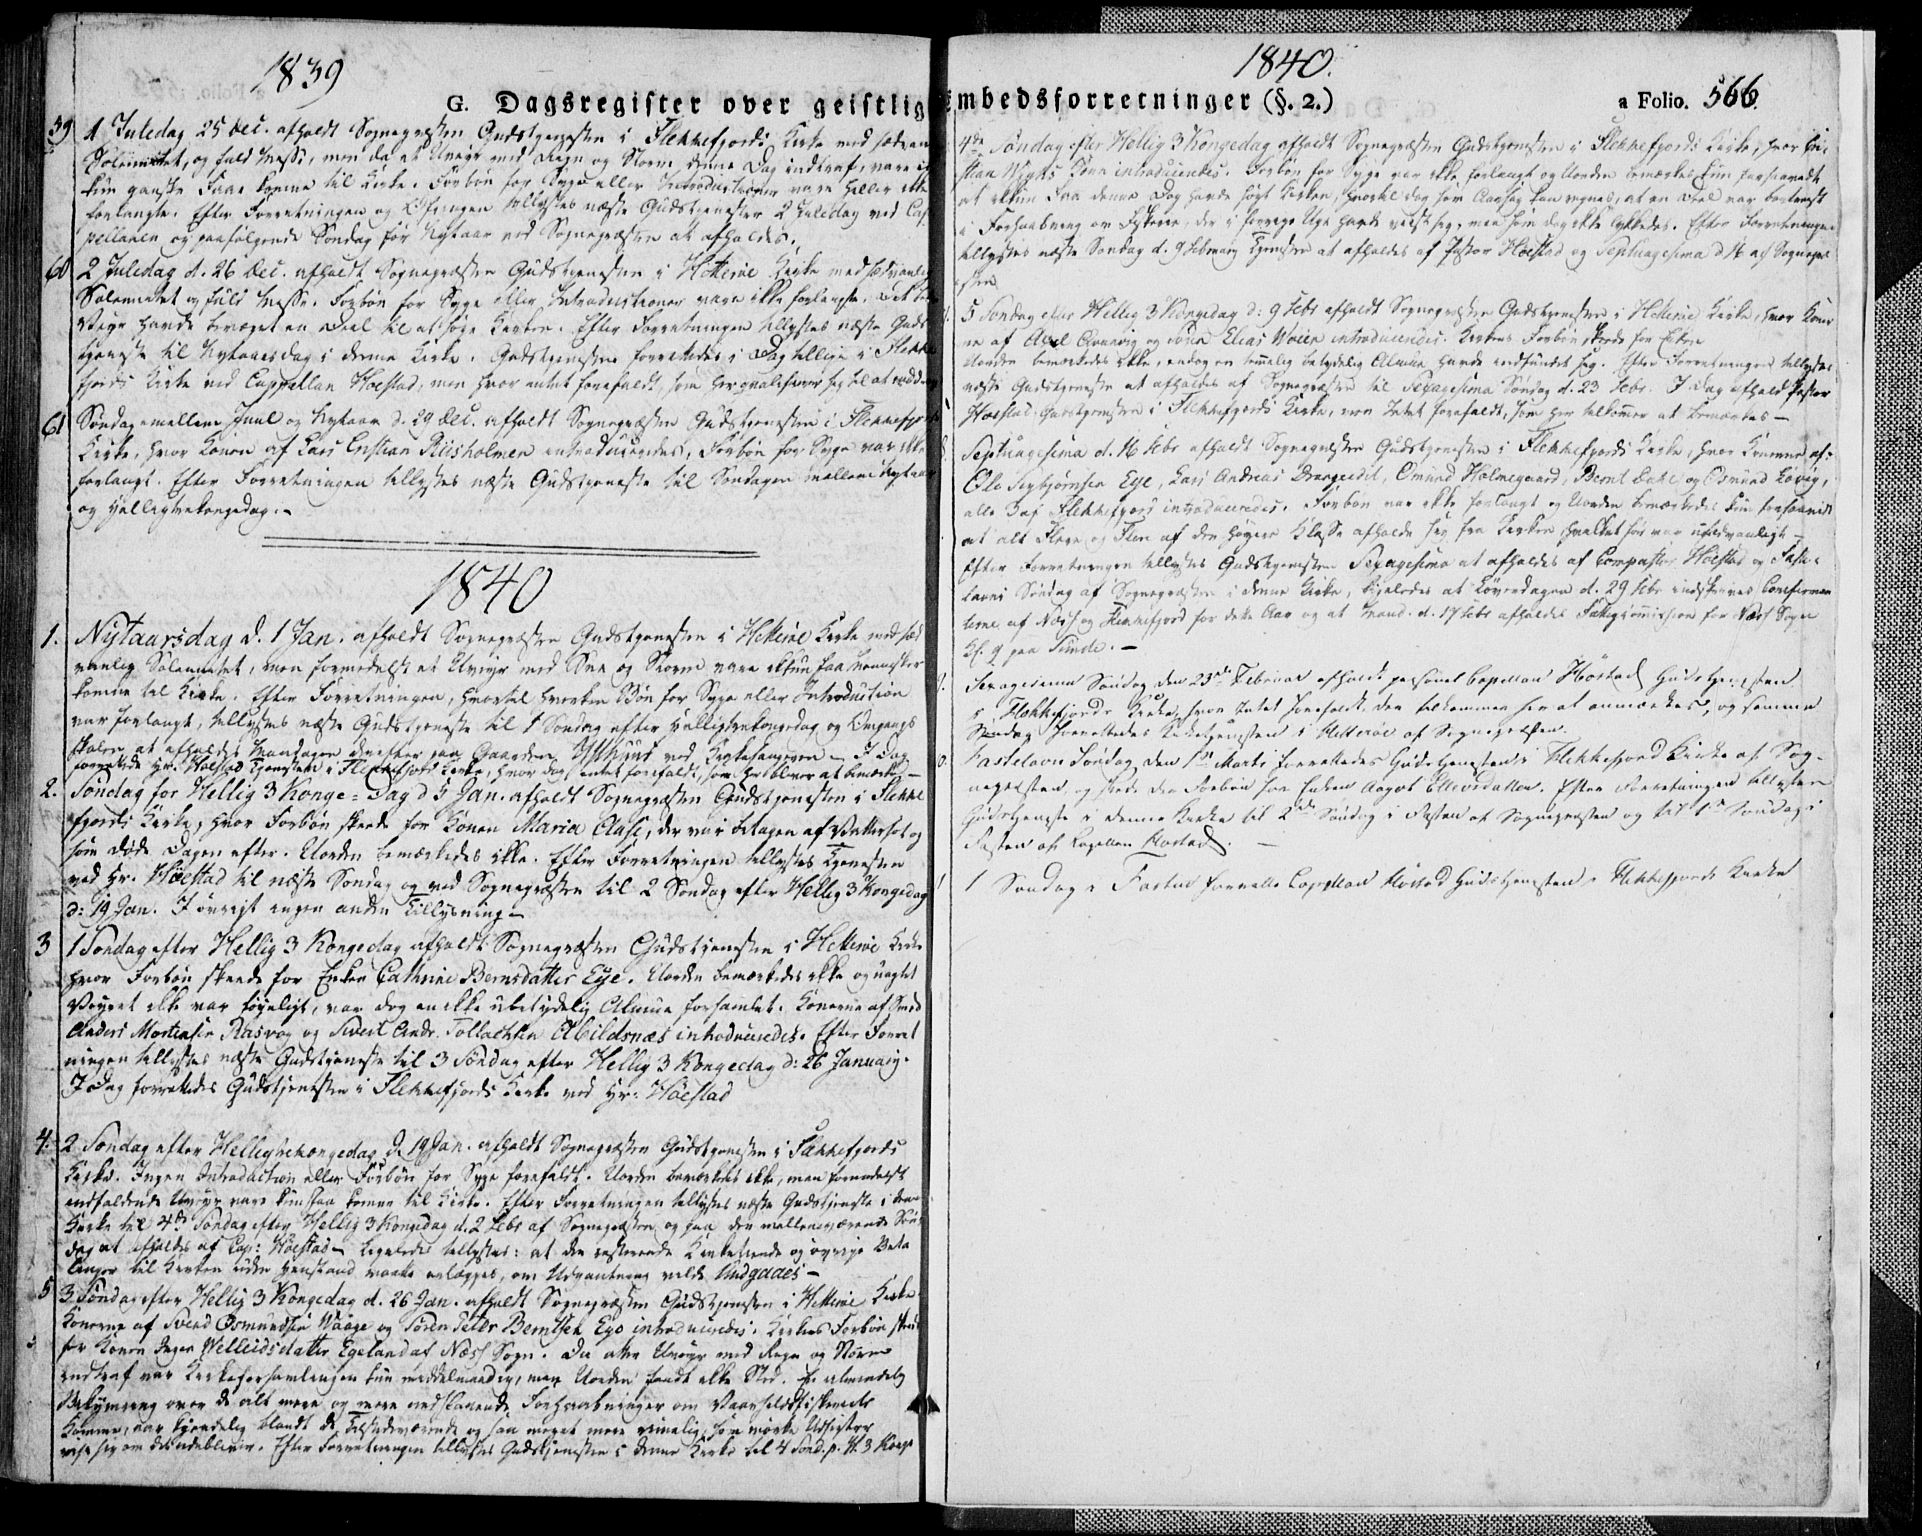 1839
G. Dagsregister over geistlig
59 1 Juledag 25 Dec. afholdt Sognepræsten Gudstjenesten i Flekkefjords Kirke med sædvan
Solennitet, og fuld Messe, men da et Uveir med Regn og Storm denne Dag indtraf, vare
kun ganske Faae komne til Kirke. Forbøn for Syge eller Introductioner vare heller ikke
forlangte. Efter Forretningen og tillystes næste Gudstjenester 2 Juledag ved Cap
pellanen og paafølgende Søndag før Nytaar ved Sognepræsten at afholdes.
60 2 Juledag d. 26 Dec. afholdt Sognepræsten Gudstjenesten i Hitterøe Kirke med sædvanlig
Solennitet og fuld Messe. Forbøn for Syge eller Introductioner vare ikke forlangte. Det
Veir havde bevæget en Deel til at søge Kirken. Efter Forretningen tillystes næste Guds
tjeneste til Nytaarsdag i denne Kirke. Gudstjenesten forrettedes i Dag tillige i Flekke
fjords Kirke ved Cappellan Høestad, men hvor intet forefaldt, som her qvalificerer sig til at
61 Søndag mellem Juul og Nytaar d. 29 Dec. afholdt Sognepræsten Gudstjenesten i Flekkefjords
Kirke, hvor Konen af Lars Cristian Riisholmen introduceredes, Forbøn for Syge var ikke
forlangt. Efter Forretningen tillystes næste Gudstjeneste til Søndagen mellem Nytaar
og Helligtrekongedag.
1840
1. Nytaarsdag d. 1 Jan. afholdt Sognepræsten Gudstjenesten i Hitterøe Kirke med sæd
vanlig Solennitet, men formedelst et Uveir med Snee og Storm vare ikkun faa Mennesker
komne til Kirke. Efter Forretningen, hvortil hverken Bøn for Syge eller Introduction
var forlangt, tillystes næste Gudstjeneste til 1 Søndag efter Helligtrekongedag og Omgangs
skolen at afholdes Mandagen derefter paa Gaarden ved Kirkesangeren. I Dag
forrettede Hr. Høestad Tjenesten i Flekkefjords Kirke, hvor dog intet forefaldt, som her bliver at bemærke
2. Søndag før Hellig 3 Konge-Dag d 5 Jan. afholdt Sognepræsten Gudstjenesten i Flekke
fjords Kirke, hvor Forbøn skeede for Konen Maria Clase, der var betagen af Vattersot og
som døde Dagen efter. Uorden bemærkedes ikke. Efter Forretningen tillystes Tjenesten
ved Hr. Høestad til næste Søndag og ved Sognepræsten til 2 Søndag efter Hellig 3 Kongedag
d: 19 Jan. I øvrigt ingen anden Tillysning
3 1 Søndag efter Hellig 3 Kongedag afholdt Sognepræsten Gudstjenesten i Hitterøe Kirke
hvor Forbøn skeede for Enken Cathrine Berntsdatter Eye. Uorden bemærkedes ikke og uagtet
Veyret ikke var føyeligt, var dog en ikke ubetydelig Almue forsamlet. Konerne af Smed
Anders Mortensen Rasvog og Sivert Andr. Tollachsen Abildsnæs introduceredes. Efter Forret
ningen tillystes næste Gudstjeneste til 3 Søndag efter Hellig 3 Kongedag d: 26 January.
I Dag forrettedes Gudstjenesten i Flekkefjords Kirke ved Hr: Høestad
4. 2 Søndag efter Helligtrekongedag d. 19 Jan. afholdt Sognepræsten Gudstjenesten i Flekkefjords
Kirke. Ingen Introduction eller Forbøn for Syge forefaldt. Uorden bemærkedes ikke, men formedelst
indfaldende Uveyr vare kun faa komne til Kirke. Efter Forretningen tillystes næste Gudstjeneste i denne
Kirke til 4de Søndag efter Hellig 3 Kongedag d. 2 Febr af Sognepræsten og paa den mellemværende Søn
dag at afholdes af Cap: Høestad Ligeledes tillystes: at den resterende Kirketiende og øvrige Beta
linger til Kirken uden Henstand maatte erlægges, om Udpantning vilde undgaaes
5 3 Søndag efter Hellig 3 Kongedag d. 26 Jan. afholdt Sognepræsten Gudstjenesten i Hitterøe Kirke
Konerne af Svend Osmundsen Vaage og Søren Peter Berntsen Eye introduceredes. Kirkens Forbøn skeede
for Konen Inger Welleidsdatter Egeland af Næss Sogn. Da atter Uveyr med Regn og Storm
indtraf var Kirkeforsamlingen kun middelmaadig, men Uorden fandt ikke Sted. En almindelig
Bekymring over de alt mere og mere nedslaaende Forhaabninger om Vaarsildfiskeriets
Komme, var kjendelig blandt de Tilstedeværende og saa meget mere rimelig, som mørke Udsigter
viste sig om Udeblivelse. Efter Forretningen tillystes Gudstjenesten i denne Kirke til 4 Sønd. p. H. 3 Konge
1840.
Embedsforretninger (§. 2.)
a Folio. 566.
4de Søndag efter Hellig 3 Kongedag afholdt Sognepræsten Gudstjenesten i Flekkefjords Kirke, hvor
Kone introduceredes. Forbøn for Syge var ikke forlangt og Uorden bemærkedes kun forsaavidt
at ikkun Faa denne Dag havde søgt Kirken, hvortil dog som Aarsag kan regnes, at en Deel var bortreist
i Forhaabning om Fiskerie, der i forrige Uge havde viist sig, men som dog ikke lykkedes. Efter Forretningen
tillystes næste Søndag d. 9 February Tjenesten at afholdes af Pastor Høestad og Septuagesima d 16 af Sognepræ
sten
5 Søndag efter Hellig 3 Kongedag d: 9 Febr afholdt Sognepræsten Gudstjenesten i Hitterøe Kirke, hvor Koner
ne af Axel og Søren Elias Woien introduceredes. Kirkens Forbøn skeede for Enken
Uorden bemærkedes ikke, endog en temmelig betydelig Almue havde indfundet sig. Efter Forretningen tillystes
næste Gudstjeneste at afholdes af Sognepræsten til Sexagesima Søndag d. 23 Febr. I Dag afholdt Pastor
Høestad Gudstjenesten i Flekkefjords Kirke, men Intet forefaldt, som her tilkommer at bemærkes
Septuagesima d. 16 Febr afholdt Sognepræsten Gudstjenesten i Flekkefjords Kirke, hvor Konerne af:
Ole Seybjørnsen Eye, Lars Andreas Drangeidet, Omund Holmegaard, Bernt Dahl og Osmund Løvig,
alle 3 af Flekkefjord introduceredes. Forbøn var ikke forlangt og Uorden bemærkedes kun forsaavidt
at alt Flere og Flere af den høyere Klasse afholde sig fra Kirken hvilket før var usædvanligt
Efter Forretningen tillystes Gudstjenesten Sexagesima at afholdes af Compastor Høestad og Faste
lavns Søndag af Sognepræsten i denne Kirke, ligeledes at Løverdagen d. 29 Febr indskrives Confirman
terne af Næss og Flekkefjord for dette Aar og at Mand. d. 17 Febr afholdes Fattigcommission for Næss Sogn
Kl. 9 paa Sunde.
Sexagesima Søndag den 23de Februar afholdt personel Capellan Höstad Gudstjenesten
i Flekkefjords Kirke, hvor Intet forefaldt der tilkommer her at anmærkes, og samme
Søndag forrettedes Kirketjenesten i Hitterøe af Sognepræsten.
Fastelavn Søndag den 1ste Marts forrettedes Gudstjenesten i Flekkefjord Kirke af Sog-
nepræsten og skede der Forbøn for Enken Aagot Ellevsdatter. Efter Forretningen tillystes
Gudstjeneste i denne Kirke til 2den Søndag i Fasten af Sognepræsten og til 1ste Søndag i
Fasten af Capellan Høstad.
1 Søndag i Fasten forrettede Capellan Høstad Gudstjenesten i Flekkefjords Kirke